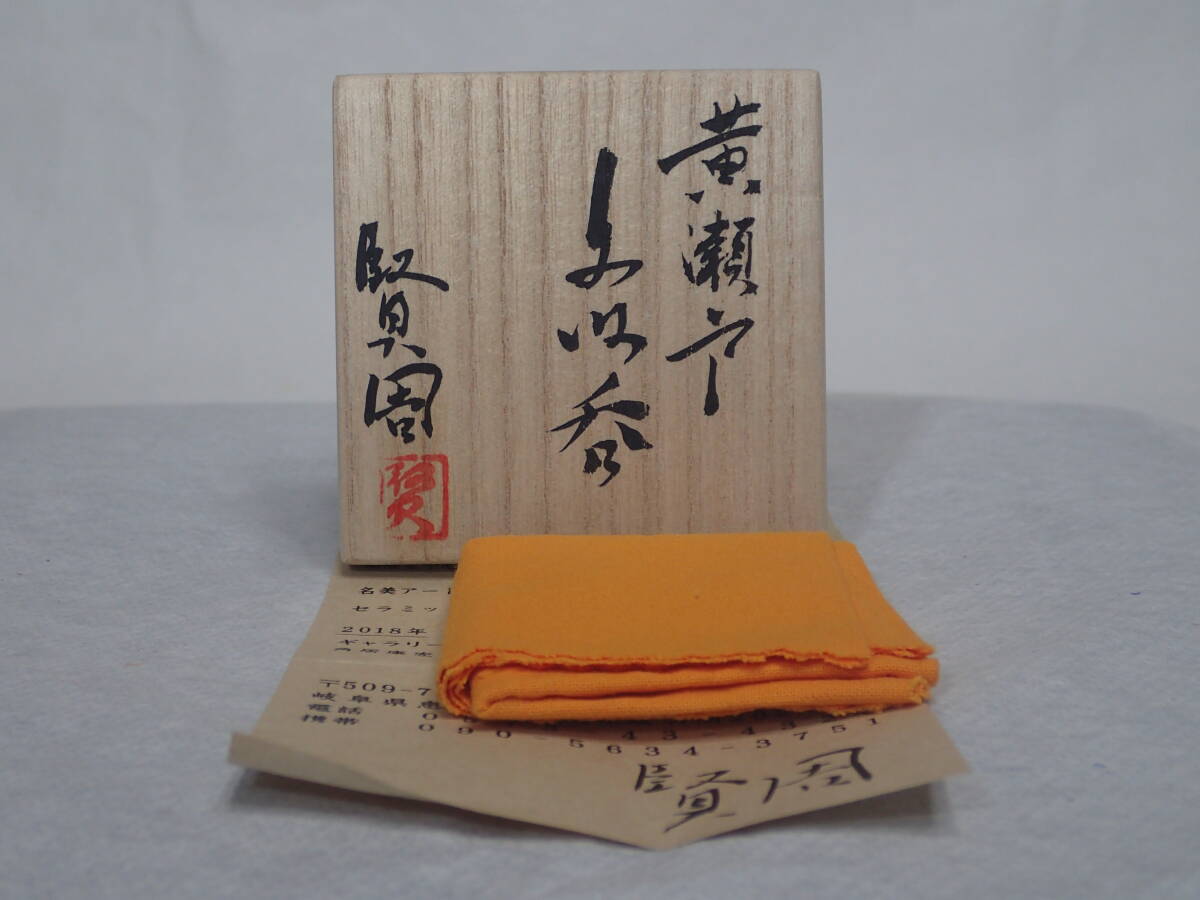 黄瀬戸
ぐい呑
賢周
賢
名美アート
セラミッ
2018年
ギャラリー
〒509-7
岐阜県恵
電話
携帯 090-5634-3751
賢周